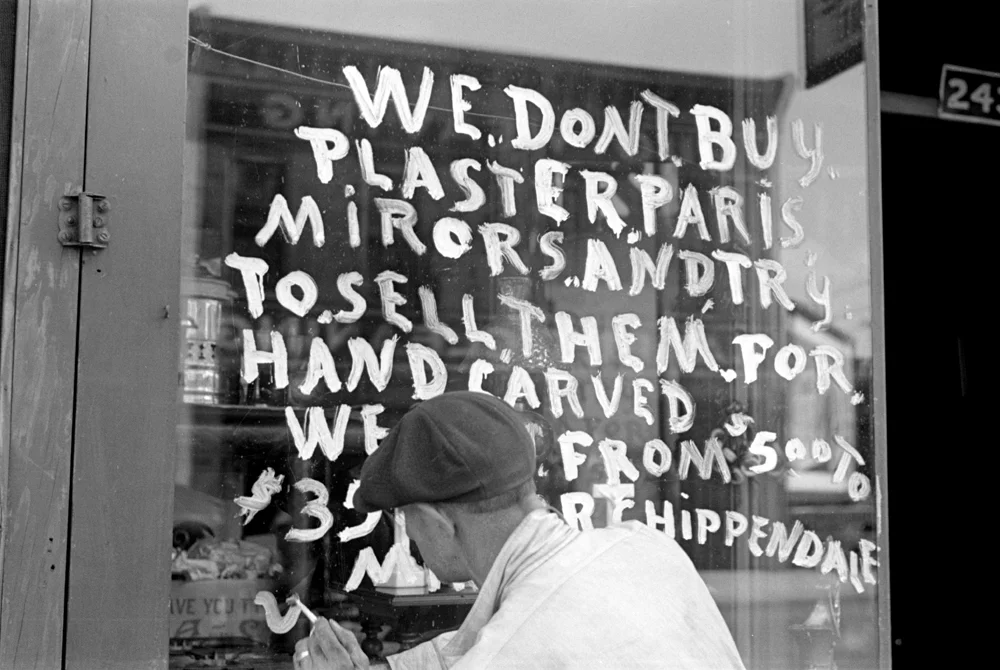 WE.. DONT. BUY.
PLASTER PARIS
MiRORS.. AND TRy
TO. SELL. THEM. FOR.
HAND CARVED
WE FROM $500 TO
$35 CHiPPENDALE
M
AVE YOU T
24